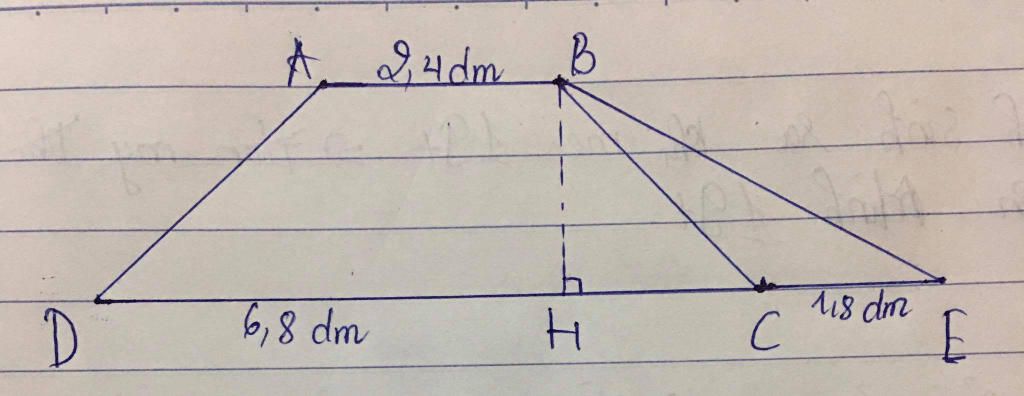 A 2,4 dm B
D 6,8 dm H C 1,8 dm E